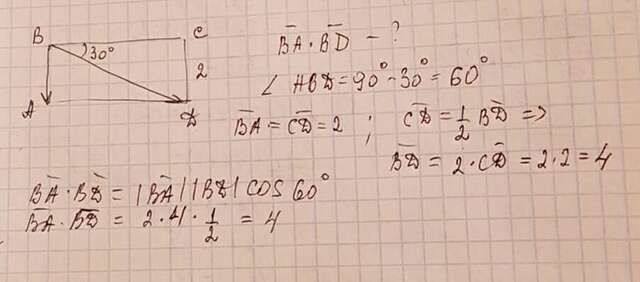 B C
30°
2
A D
BA · BD - ?
∠ ABD = 90° - 30° = 60°
BA = CD = 2 ; CD = 1/2 BD =>
BD = 2 · CD = 2 · 2 = 4
BA · BD = |BA| |BD| cos 60°
BA · BD = 2 · 4 · 1/2 = 4